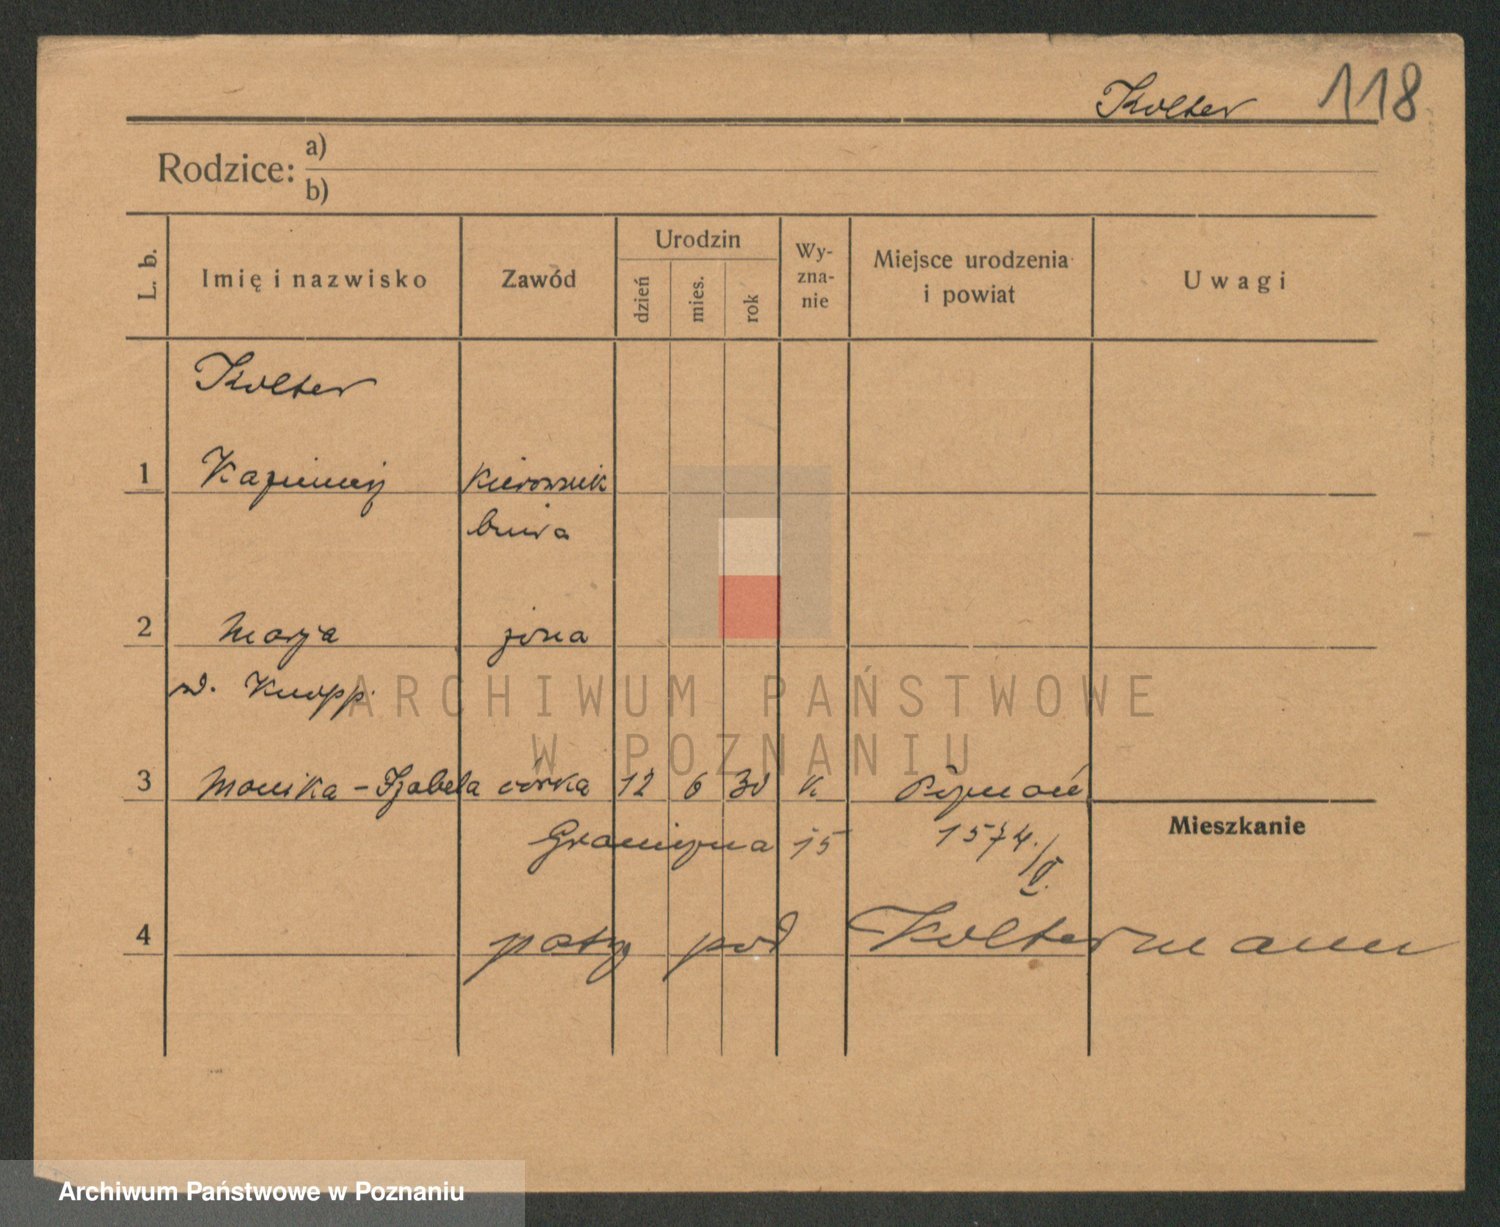 Kolter 118
Rodzice: a)
b)
L. b. Imię i nazwisko Zawód Urodzin dzień mies. rok Wy-zna-nie Miejsce urodzenia i powiat Uwagi
Kolter
1 Kazimierz kierownik
biura
2 Marja żona
z d. Knopp.
3 Monika-Izabela córka 12 6 30 k. Poznań
Mieszkanie
Graniczna 15 1574/V.
4 patrz pod Koltermann
ARCHIWUM PAŃSTWOWE
W POZNANIU
Archiwum Państwowe w Poznaniu